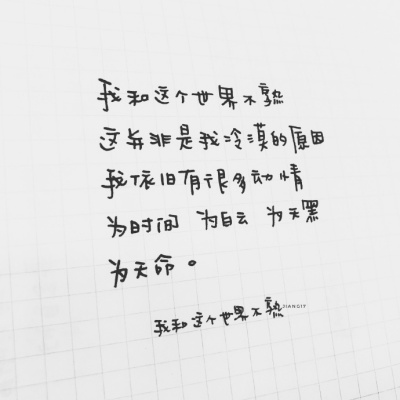 我和这个世界不熟
这并非是我冷漠的原因
我依旧有很多动情
为时间 为白云 为天黑
为天命。
我和这个世界不熟
JIANGIY